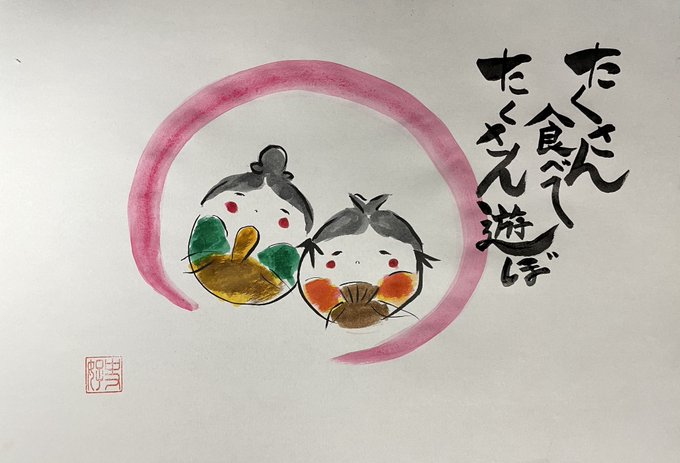 たくさん食べて
たくさん遊ぼ